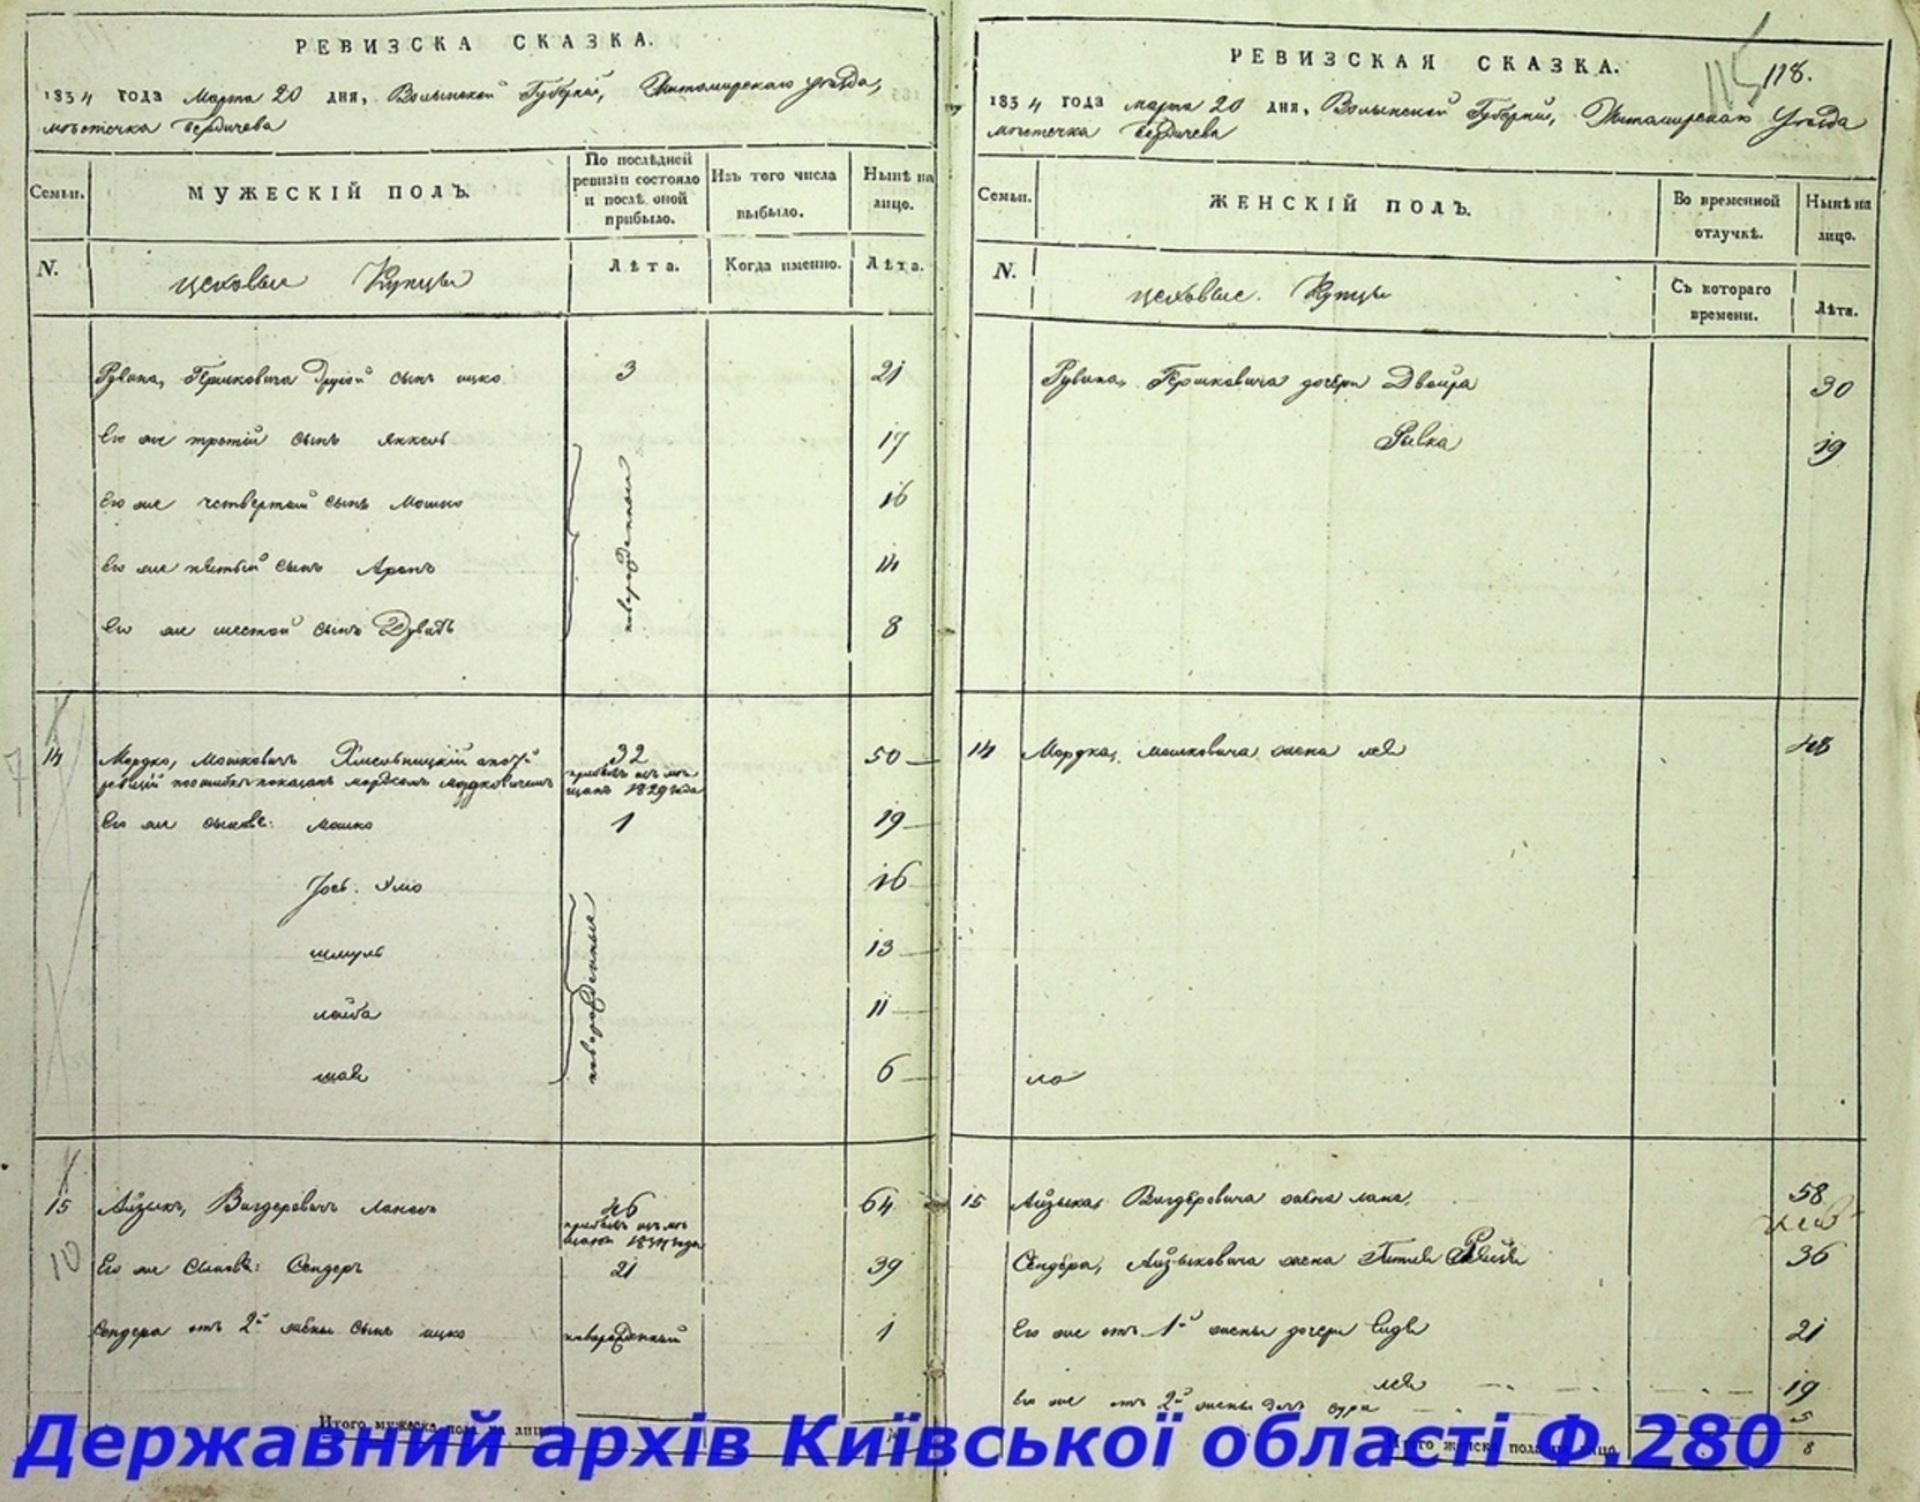 РЕВИЗСКА СКАЗКА.
1834 года Марта 20 дня, Волынской Губернiи, Житомирскаго уезда,
мѣстечка Бердичева
Семьи.
МУЖЕСКІЙ ПОЛЪ.
По послѣдней ревизіи состояло и послѣ оной прибыло.
Изъ того числа выбыло.
Нынѣ на лицо.
N.
цеховые Купцы
Лѣта.
Когда именно.
Лѣта.
Рувина, Гершковича другой сынъ ицко 3 21
Его же третій сынъ Янкель 17
Его же четвертый сынъ Мошко 16
Его же пятый сынъ Аронъ 14
Его же шестой сынъ Дувидъ 8
новорожденные
14 Мордко, Мошковичъ 32 50
по ошибке показанъ мордкомъ мордковичемъ прибылъ изъ мещанъ 1829 года
Его же сыновья: мошко 1 19
Іось 16
шмуль 13
лейба 11
шая 6
новорожденные
15 Айзыкъ, Вигдоровичъ 46 64
прибылъ изъ
Его же сыновья: Сендеръ 21 39
Сендера отъ 2й жены сынъ ицко новорожденный 1
Итого мужеска пола на лицо
РЕВИЗСКАЯ СКАЗКА.
115 118.
1834 года марта 20 дня, Волынской Губерніи, Житомирскаго Уезда
мѣстечка Бердичева
Семьи.
ЖЕНСКІЙ ПОЛЪ.
Во временной отлучкѣ.
Нынѣ на лицо.
N.
цеховые. Купцы
Съ котораго времени.
Лѣта.
Рувина, Гершковича дочери Двойра 30
Ривка 19
14 Мордка, мошковича жена лея 48
15 Айзыка, Вигдоровича жена 58
Сендера, Айзыковича жена 36
Его же отъ 1й жены дочери 21
лея 19
Его же отъ 2й жены дочь сура 5
Итого женска пола на лицо 8
Державний архів Київської області Ф.280